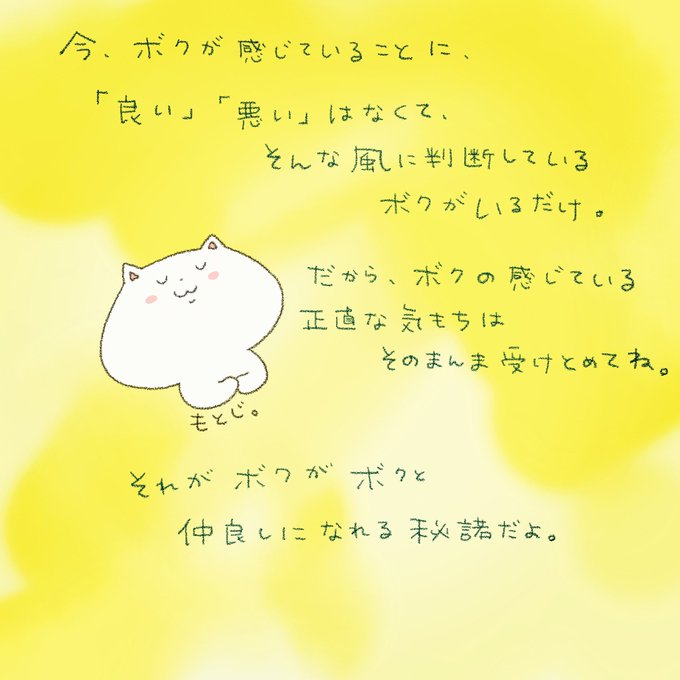 今、ボクが感じていることに、
「良い」「悪い」はなくて、
そんな風に判断している
ボクがいるだけ。
だから、ボクの感じている
正直な気もちは
そのまんま受けとめてね。
もとじ。
それがボクがボクと
仲良しになれる秘諸だよ。